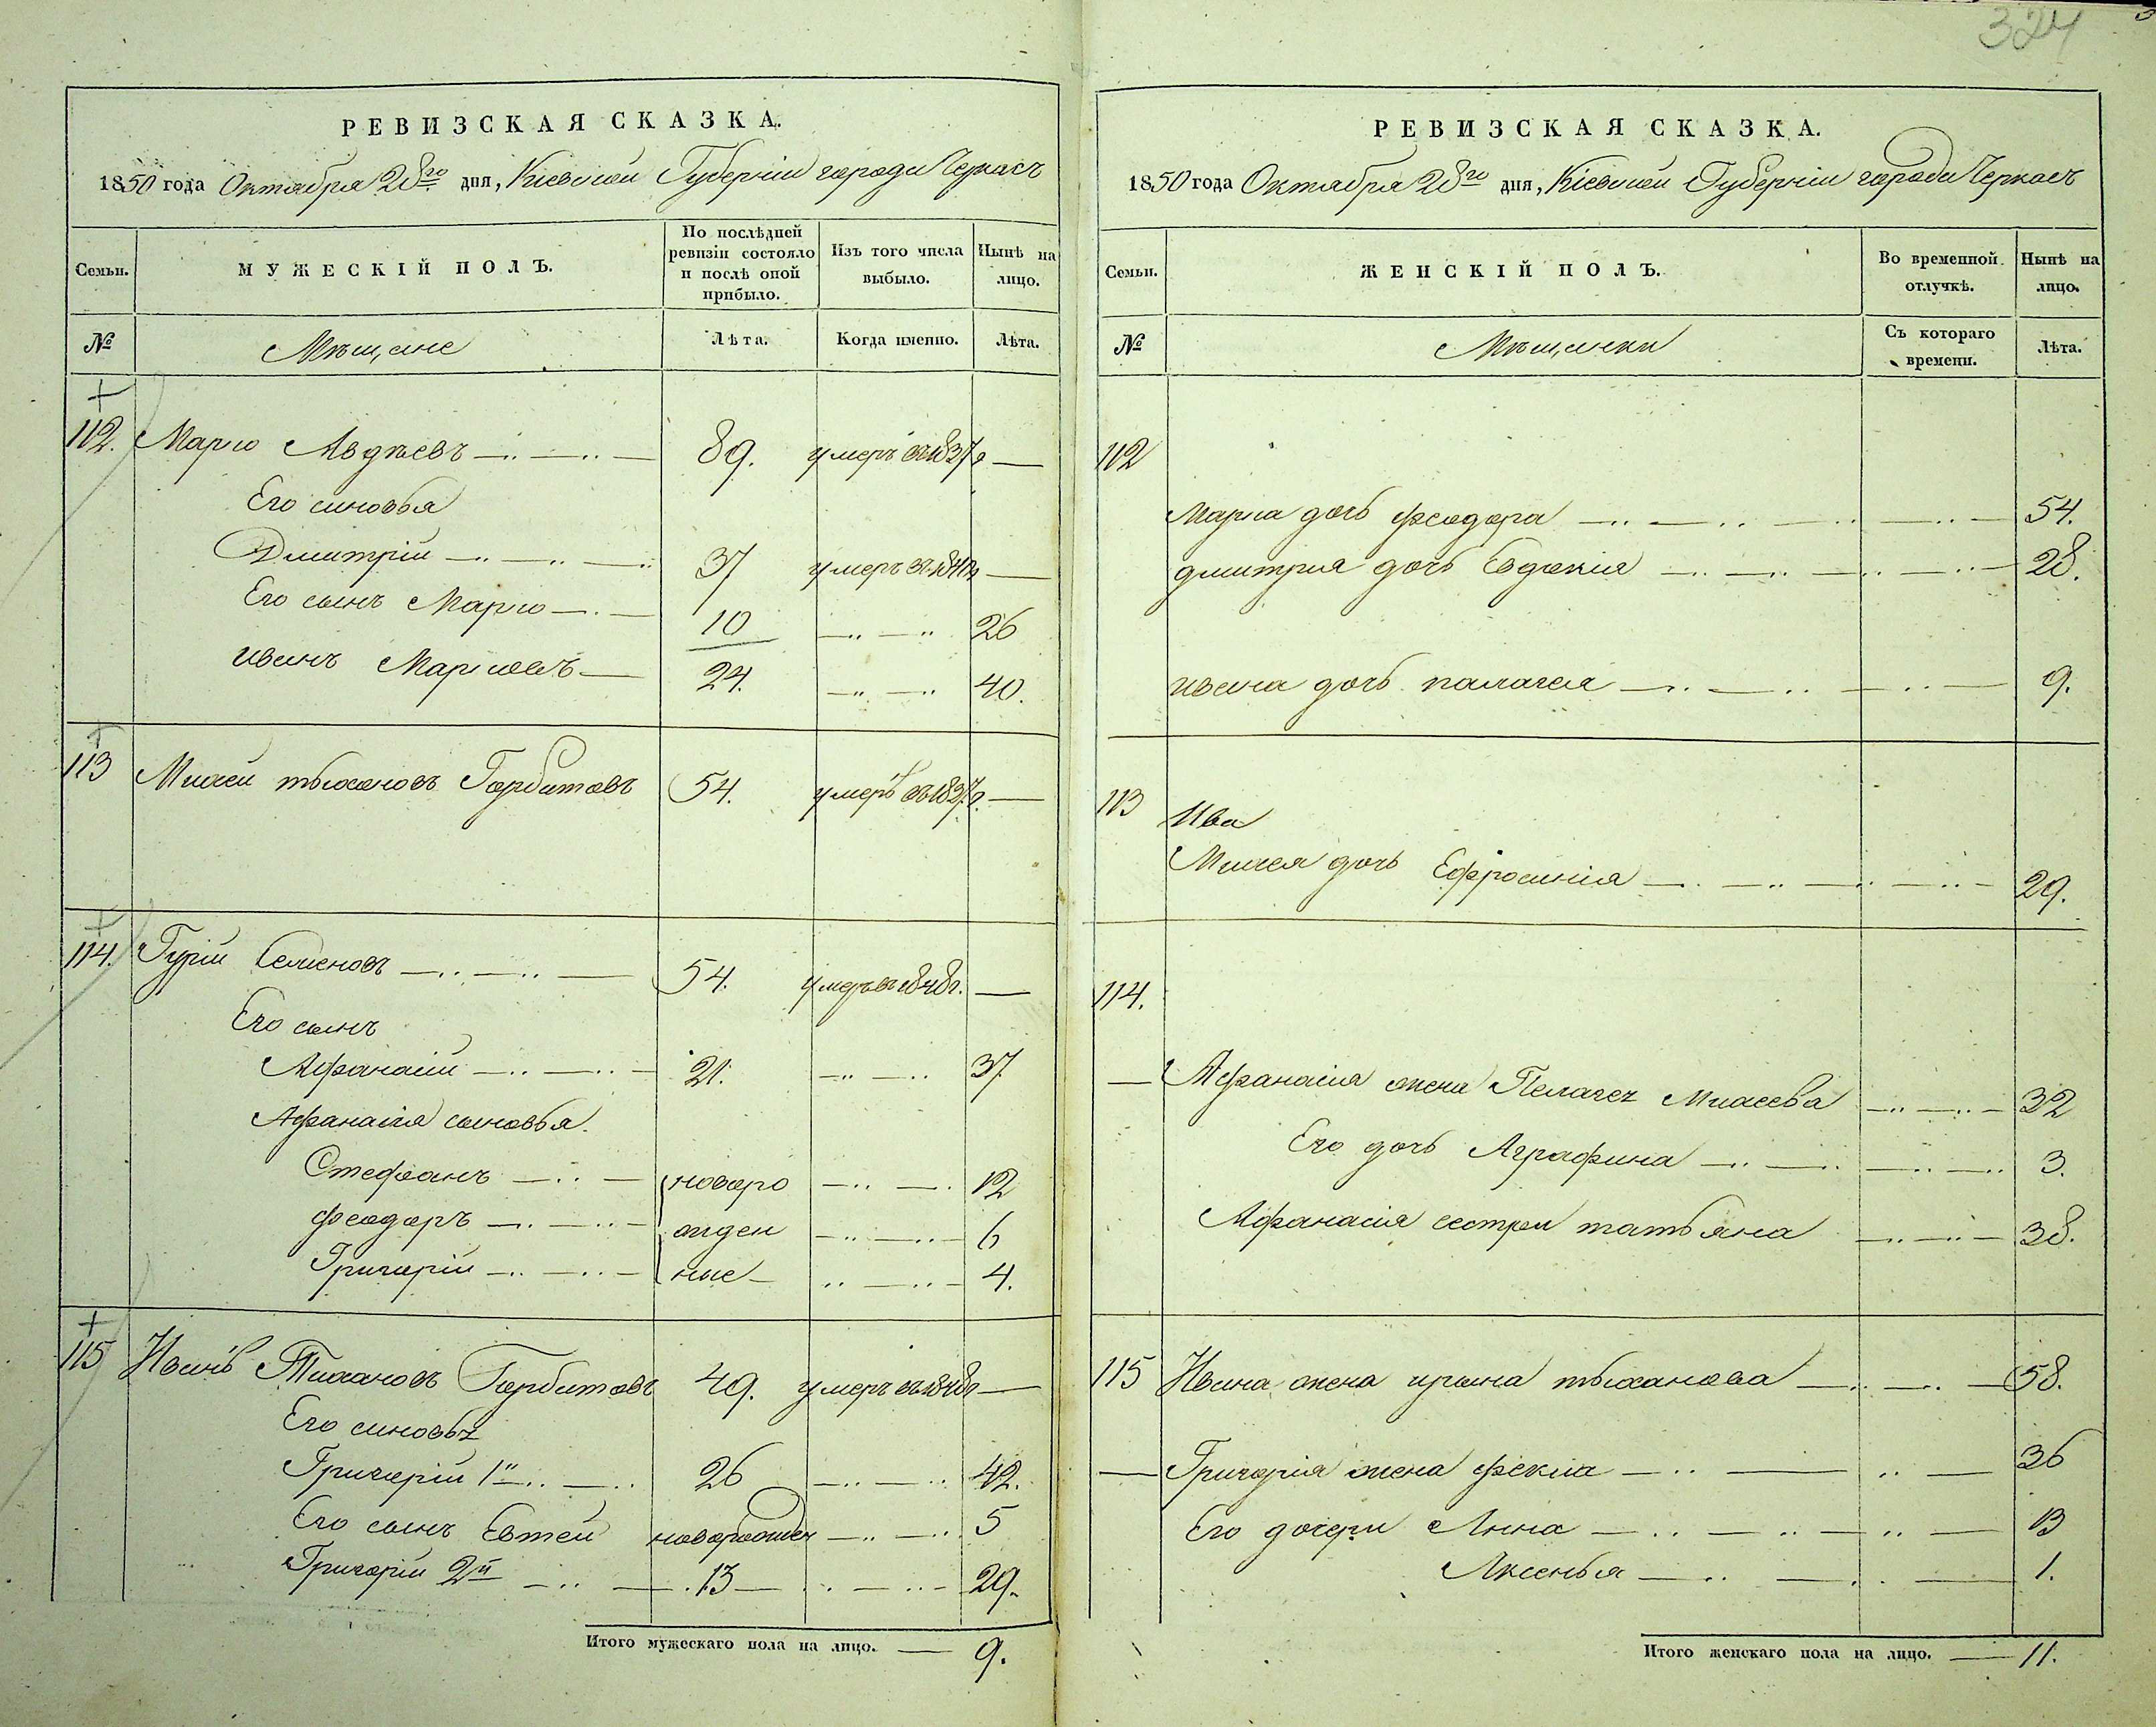 324
РЕВИЗСКАЯ СКАЗКА.
1850 года Октября 28го дня, Кіевской Губерніи города Черкасъ
Семьи.
МУЖЕСКІЙ ПОЛЪ.
По послѣдней ревизіи состояло и послѣ оной прибыло.
Изъ того числа выбыло.
Нынѣ на лицо.
№
Мѣщане
Лѣта.
Когда именно.
Лѣта.
112. Марко Авдѣевъ 89. умеръ въ 1837г —
Его синовья
Дмитрій 37 умеръ въ —
Его сынъ Марко 10 26
иванъ Марковъ 24. 40.
113 Мосей тыхоновъ Горбатовъ 54. умеръ въ 1837г. —
114. Гурій Семеновъ 54. умеръ въ 1848г. —
Его сынъ
Афанасій 21. 37
Афанасія сыновья.
Стефанъ новоро 12
феодоръ жден 6
Григорій ные 4.
115 Иванъ Тихоновъ Горбатовъ 49. умеръ въ 1848г —
Его синовья
Григорій 1й 26 42.
Его сынъ Евтей новорожден 5
Григорій 2й 13 29.
Итого мужескаго пола на лицо. — 9.
РЕВИЗСКАЯ СКАЗКА.
1850 года Октября 28го дня, Кіевской Губерніи города Черкасъ
Семьи.
ЖЕНСКІЙ ПОЛЪ.
Во временной отлучкѣ.
Нынѣ на лицо.
№
Мѣщанки
Съ котораго времени.
Лѣта.
112
Марка дочь феодора 54.
дмитрия дочь Евдокія 28.
ивана дочь палагея 9.
113 Ива
Мосея дочь Ефросинія 29.
114.
Афанасія жена Пелагея Мосеева 32
Его дочь Аграфина 3.
Афанасія сестра татьяна 38.
115 Ивана жена ирына тыханова 58.
Григорія жена фекла 36
Его дочери Анна 13
Аксенья 1.
Итого женскаго пола на лицо. — 11.